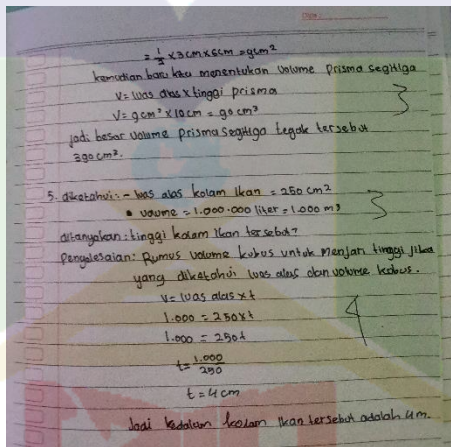 = 1/3 x 3cm x 6cm = 9cm²
kemudian baru kita menentukan volume prisma segitiga
V = luas alas x tinggi prisma
V = 9cm² x 10cm = 90 cm³
jadi besar volume prisma segitiga tegak tersebut
390 cm³.
3
5. diketahui: - luas alas kolam ikan = 250 cm²
• volume = 1.000.000 liter = 1.000 m³
3
ditanyakan: tinggi kolam ikan tersebut?
Penyelesaian: Rumus volume kubus untuk menjari tinggi jika
yang diketahui luas alas dan volume kubus.
V = luas alas x t
1.000 = 250 x t
4
1.000 = 250t
t = 1.000/250
t = 4 cm
Jadi kedalam kolam ikan tersebut adalah 4m.